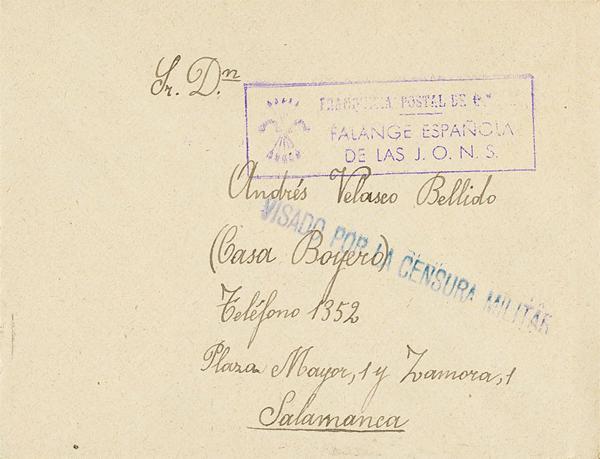 Sr. D.n
FRANQUICIA POSTAL DE
FALANGE ESPAÑOLA
DE LAS J. O. N. S.
Andrés Velasco Bellido
VISADO POR LA CENSURA MILITAR
(Casa Boyero)
Teléfono 1352
Plaza Mayor, 1 y Zamora, 1
Salamanca